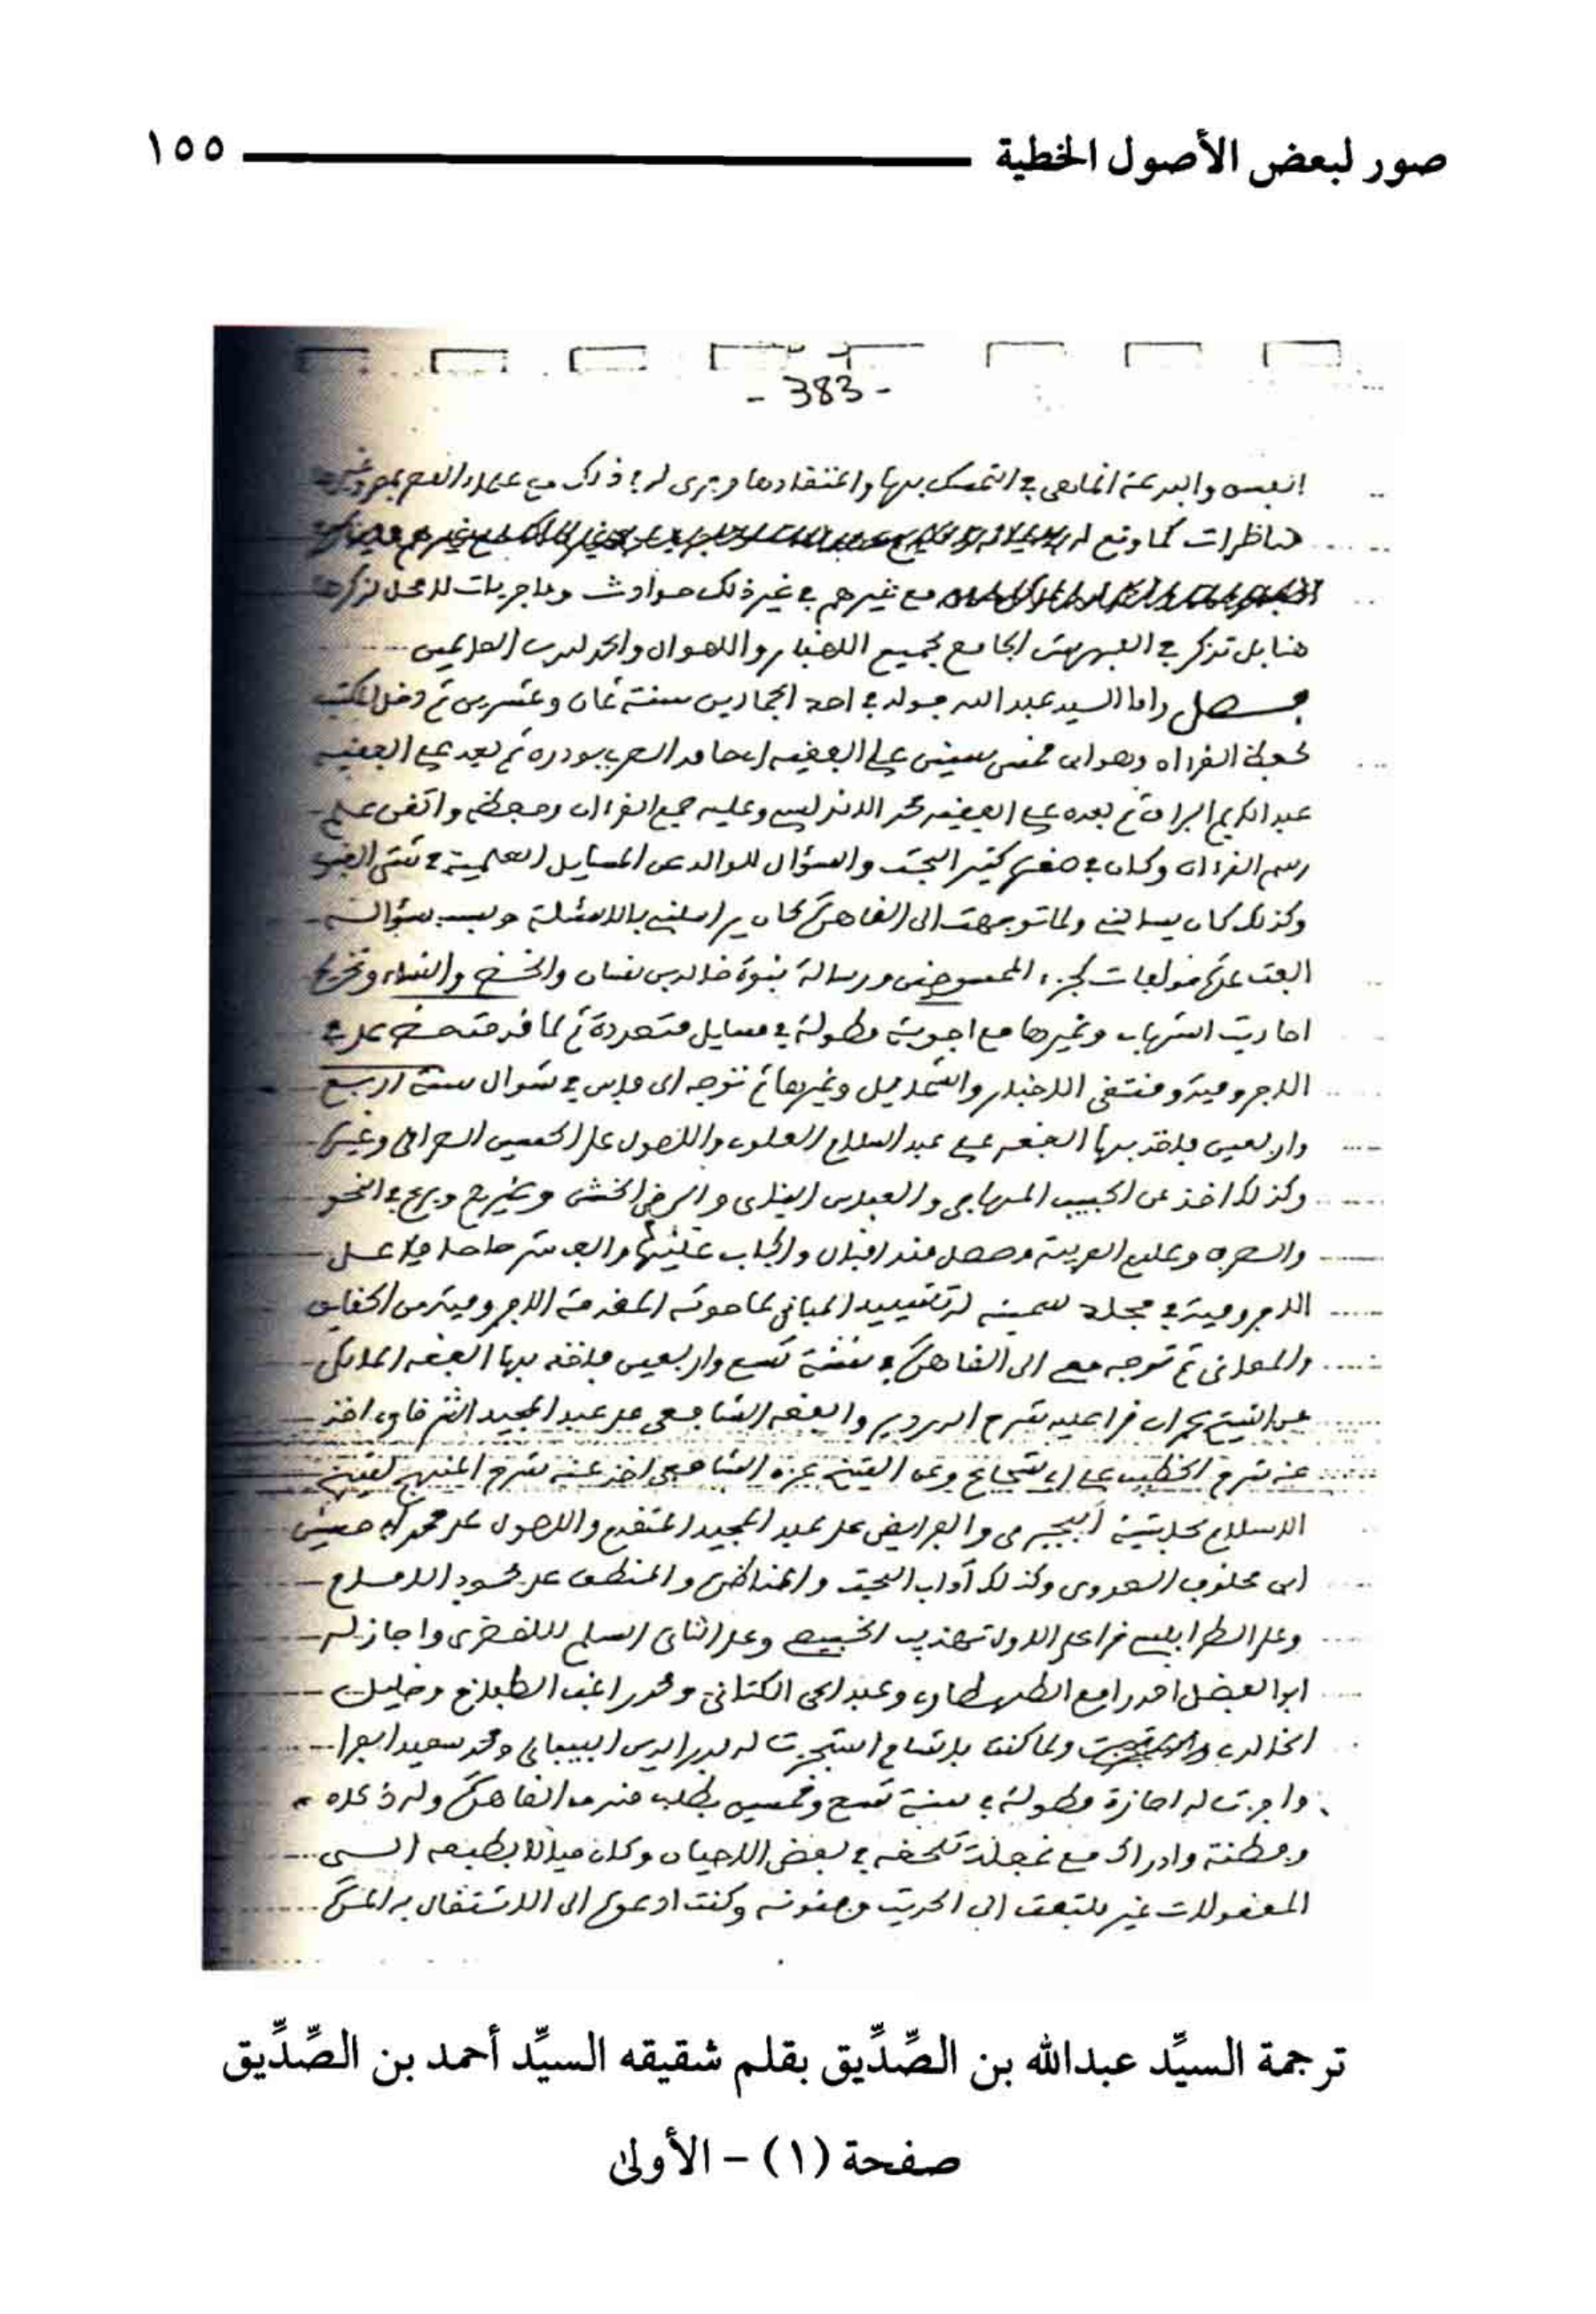 صور لبعض الأصول الخطية ١٥٥
- 383 -
والبدعة في التمسك بها واعتقادها وجرى له في ذلك مع علماء العصر
مناظرات كما وقع له
مع غيرهم في غير ذلك حوادث وماجريات لا محل لذكرها
هنا بل تذكر في الفهرس الجامع لجميع الاخبار والاحوال والحمد لله رب العالمين
فصل واما السيد عبد الله فولد في احد الجمادين سنة ثمان وعشرين ثم دخل المكتب
لحفظ القرءان وهو ابن خمس سنين على الفقيه ثم بعده على الفقيه
عبد الكريم البراق ثم بعده على الفقيه محمد الاندلسي وعليه جمع القرءان وحفظه واتقن علم
رسم القرءان وكان في صغره كثير البحث والسؤال للوالد عن المسايل العلمية في شتى الفنون
وكذلك كان يسالني ولما توجهت الى القاهرة كان يراسلني بالاسئلة وبسبب سؤالاته
الفت عدة مؤلفات كجزء ورسالة نبوة خالد بن سنان والخضر والنساء وتخريج
احاديث الشهاب وغيرها مع اجوبة مطولة في مسايل متعددة ثم لما قدمت حضر علي في
الاجرومية ومنتقى الاخبار والشمايل وغيرها ثم توجه الى فاس في شوال سنة اربع
واربعين فاخذ بها الفقه على عبد السلام العلوي والاصول على الحسين العراقي وغيره
وكذلك اخذ عن الحبيب المهاجي والعباس البناني والرضي الخنشي وغيرهم وبرع في النحو
والصرف وعلوم العربية وحصل منه اقبال واكباب عليها والف شرحا حافلا على
الاجرومية في مجلد سميته له تشييد المباني لما حوته المقدمة الاجرومية من الحقايق
والمعاني ثم توجه معي الى القاهرة في سنة تسع واربعين فاخذ بها الفقه المالكي
عن الشيخ عمران قرا عليه شرح الدردير والفقه الشافعي على عبد المجيد الشرقاوي اخذ
عنه شرح الخطيب على ابي شجاع وعن الشيخ عزة الشافعي اخذ عنه شرح المنهج لشيخ
الاسلام بحاشية البجيرمي والفرايض على عبد المجيد المتقدم والاصول على محمد حسنين
ابن مخلوف العدوي وكذلك آداب البحث والمناظرة والمنطق على محمود الامام
وعلى الطرابلسي قرا على الاول تهذيب الخبيصي وعلى الثاني السلم للاخضري واجاز له
ابو الفضل احمد رافع الطهطاوي وعبد الحي الكتاني ومحمد راغب الطباخ وخليل
الخالدي ولما كنت بالشام استجزت له بدر الدين البيباني ومحمد سعيد الفرا
واجزت له اجازة مطولة في سنة تسع وخمسين بطلب منه من القاهرة وله ذكاء
وفطنة وادراك مع غفلة تلحقه في بعض الاحيان وكان ميالا بطبعه الى
المعقولات غير ملتفت الى الحديث وفنونه وكنت ادعوه الى الاشتغال به المرة
ترجمة السيِّد عبدالله بن الصِّدِّيق بقلم شقيقه السيِّد أحمد بن الصِّدِّيق
صفحة (١) - الأولىٰ